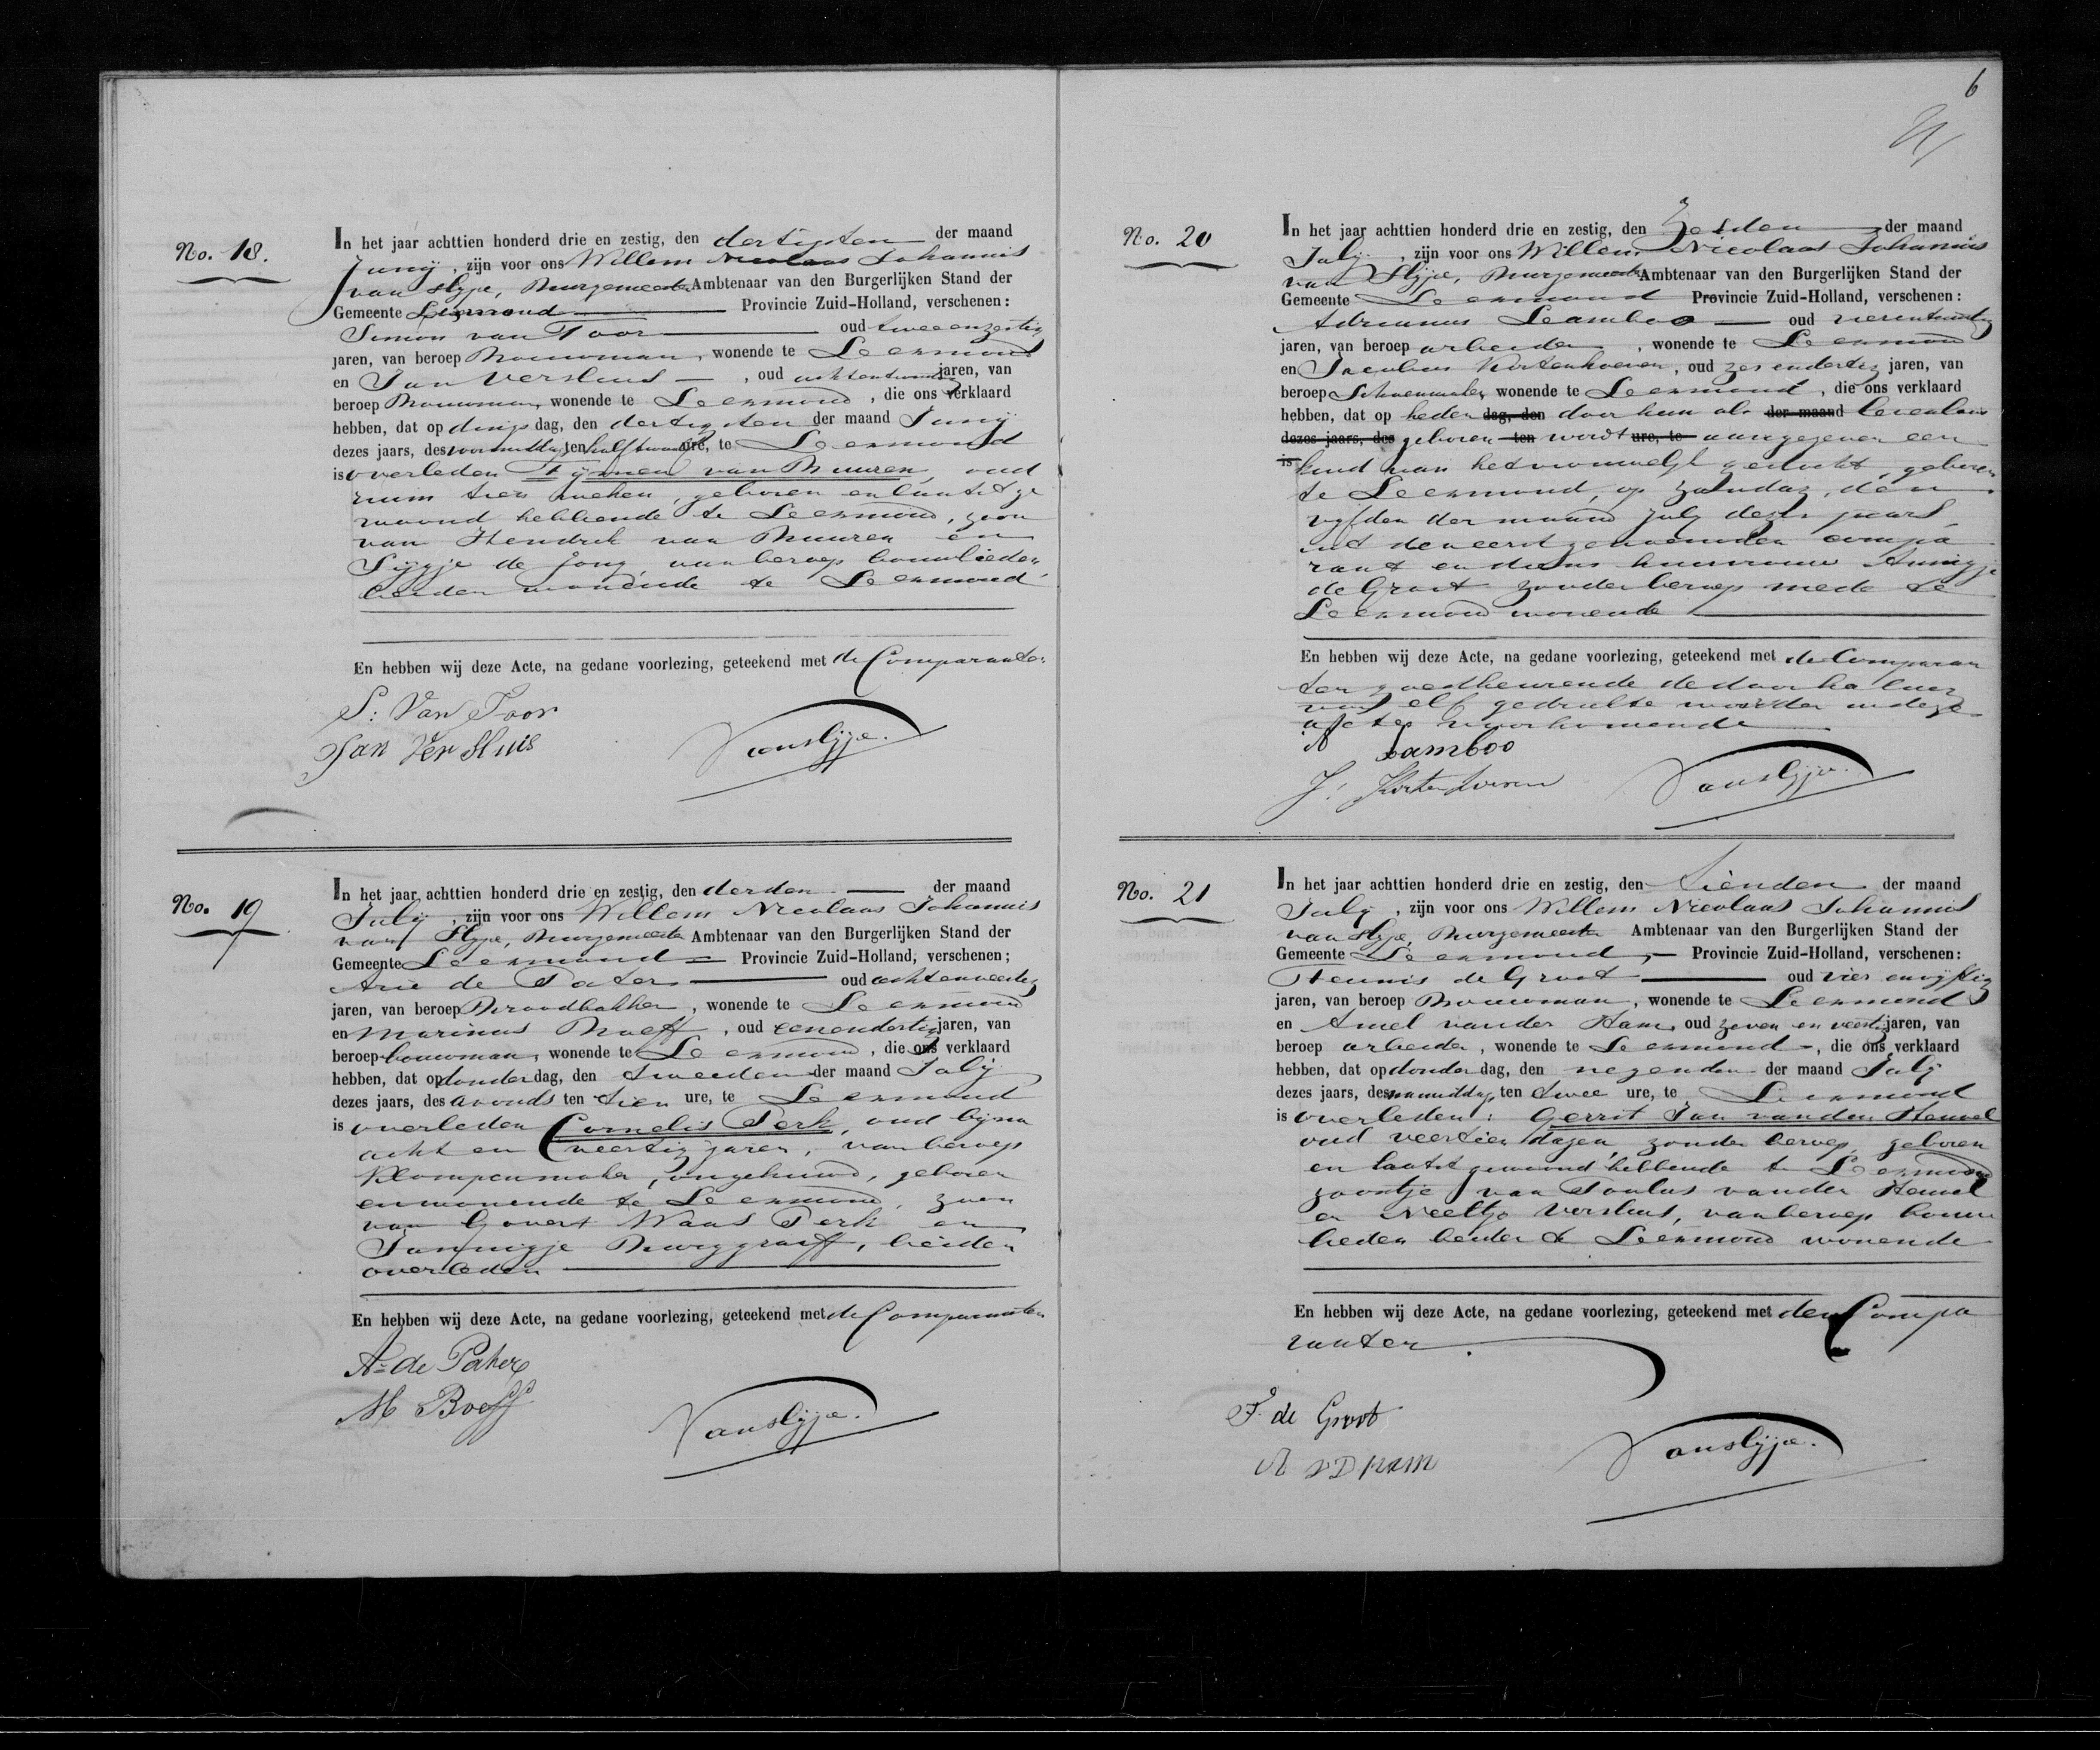 No. 18.
In het jaar achttien honderd drie en zestig, den dertigsten der maand
Junij, zijn voor ons Willem Nicolaas Johannis
van Slijpe, Burgemeester Ambtenaar van den Burgerlijken Stand der
Gemeente Leexmond Provincie Zuid-Holland, verschenen:
Simon van Toor oud tweeenzestig
jaren, van beroep Bouwman, wonende te Leexmond
en Jan Versluis, oud achtentwintig jaren, van
beroep Bouwman, wonende te Leexmond, die ons verklaard
hebben, dat op dingsdag, den dertigsten der maand Junij
dezes jaars, des voormiddags ten half twaalf ure, te Leexmond
is overleden Tijmen van Buuren, oud
ruim tien weken, geboren en laatst ge
woond hebbende te Leexmond, zoon
van Hendrik van Buuren en
Sijgje de Jong, van beroep bouwlieden,
beiden wonende te Leexmond
En hebben wij deze Acte, na gedane voorlezing, geteekend met de Comparanten.
S: Van Toor
Jan Ver Sluis
Vanslijpe.
No. 19
In het jaar achttien honderd drie en zestig, den derden der maand
Julij, zijn voor ons Willem Nicolaas Johannis
van Slijpe, Burgemeester Ambtenaar van den Burgerlijken Stand der
Gemeente Leexmond Provincie Zuid-Holland, verschenen;
Arie de Pater oud achtenveertig
jaren, van beroep Broodbakker, wonende te Leexmond
en Marinus Boeff, oud eenendertig jaren, van
beroep bouwman, wonende te Leexmond, die ons verklaard
hebben, dat op donderdag, den tweeden der maand Julij
dezes jaars, des avonds ten tien ure, te Leexmond
is overleden Cornelis Perk, oud bijna
acht en veertig jaren, van beroep
Klompenmaker, ongehuwd, geboren
en wonende te Leexmond, zoon
van Govert Maas Perk en
Jannigje Burggraaff, beiden
overleden
En hebben wij deze Acte, na gedane voorlezing, geteekend met de Comparanten
A= de Pater
M Boeff
Vanslijpe.
6
No. 20
In het jaar achttien honderd drie en zestig, den Zesden der maand
Julij, zijn voor ons Willem Nicolaas Johannis
van Slijpe, Burgemeester Ambtenaar van den Burgerlijken Stand der
Gemeente Leexmond Provincie Zuid-Holland, verschenen:
Adrianus Leamboo oud vierentwintig
jaren, van beroep arbeider, wonende te Leexmond
en Jacobus Kortenhoeven, oud zes endertig jaren, van
beroep Schoenmaker, wonende te Leexmond, die ons verklaard
hebben, dat op heden dag, den door hun als der maand levenloos
dezes jaars, des geboren ten wordt ure, te aangegeven een
is kind van het vrouwelijk geslacht, geboren
te Leexmond, op zondag, den
vijfden der maand Julij dezes jaars,
uit den eerstgenoemden compa
rant en diens huisvrouw Annigje
de Groot zonder beroep mede te
Leexmond wonende
En hebben wij deze Acte, na gedane voorlezing, geteekend met de Comparan
ten goedkeurende de doorhaling
van elf gedrukte woorden in deze
acte voorkomende
A Lamboo
J: Kortenhoeven
Vanslijpe.
No. 21
In het jaar achttien honderd drie en zestig, den tienden der maand
Julij, zijn voor ons Willem Nicolaas Johannis
van Slijpe, Burgemeester Ambtenaar van den Burgerlijken Stand der
Gemeente Leexmond, Provincie Zuid-Holland, verschenen:
Teunis de Groot oud vier envijftig
jaren, van beroep Bouwman, wonende te Leexmond
en Amel vander Ham, oud zeven en veertig jaren, van
beroep arbeider, wonende te Leexmond, die ons verklaard
hebben, dat op donderdag, den negenden der maand Julij
dezes jaars, des namiddags ten twee ure, te Leexmond
is overleden: Gerrit Jan vanden Heuvel
oud veertien dagen, zonder beroep, geboren
en laatst gewoond hebbende te Leexmond
zoontje van Paulus vanden Heuvel
en Neeltje Versluis, van beroep bouw
lieden beiden te Leexmond wonende
En hebben wij deze Acte, na gedane voorlezing, geteekend met den Compa
ranten.
T. de Groot
A VD HAM
Vanslijpe.